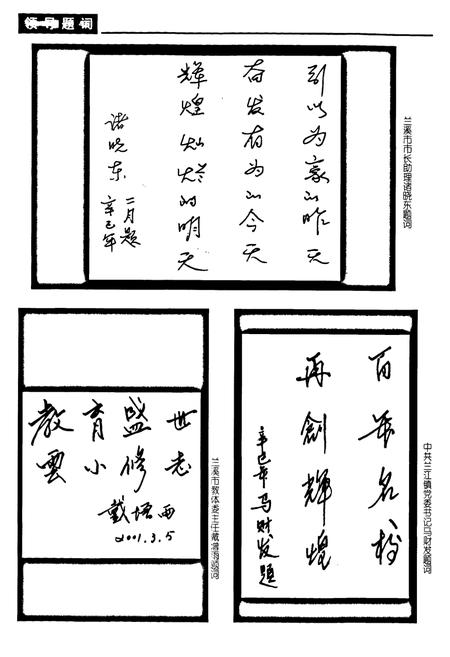 领导题词
引以为豪的昨天
奋发有为的今天
辉煌灿烂的明天
诸晓东
辛巳年
二月题
兰溪市市长助理诸晓东题词
教育盛世
雲小修志
2001.3.5
兰溪市教体委主任戴增雨题词
百年名校
再創輝煌
辛巳年马财发題
中共兰江镇党委书记马财发题词